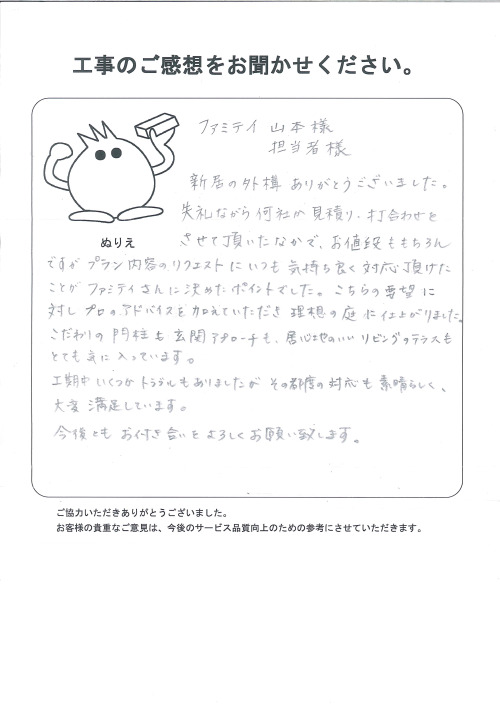 工事のご感想をお聞かせください。
ファミテイ 山本様
担当者様
新居の外構 ありがとうございました。
失礼ながら何社か見積り、打合わせを
ぬりえ
させて頂いたなかで、お値段ももちろん
ですが プラン内容のリクエストに いつも 気持ち良く 対応頂けた
ことが ファミテイさんに決めたポイントでした。こちらの要望に
対し プロのアドバイスを加えていただき 理想の庭に仕上がりました。
こだわりの 門柱も 玄関アプローチも、居心地のいい リビングのテラスも
とても気に入っています。
工期中 いくつか トラブルもありましたが その都度の対応も 素晴らしく、
大変 満足しています。
今後とも お付き合いを よろしくお願い致します。
ご協力いただきありがとうございました。
お客様の貴重なご意見は、今後のサービス品質向上のための参考にさせていただきます。